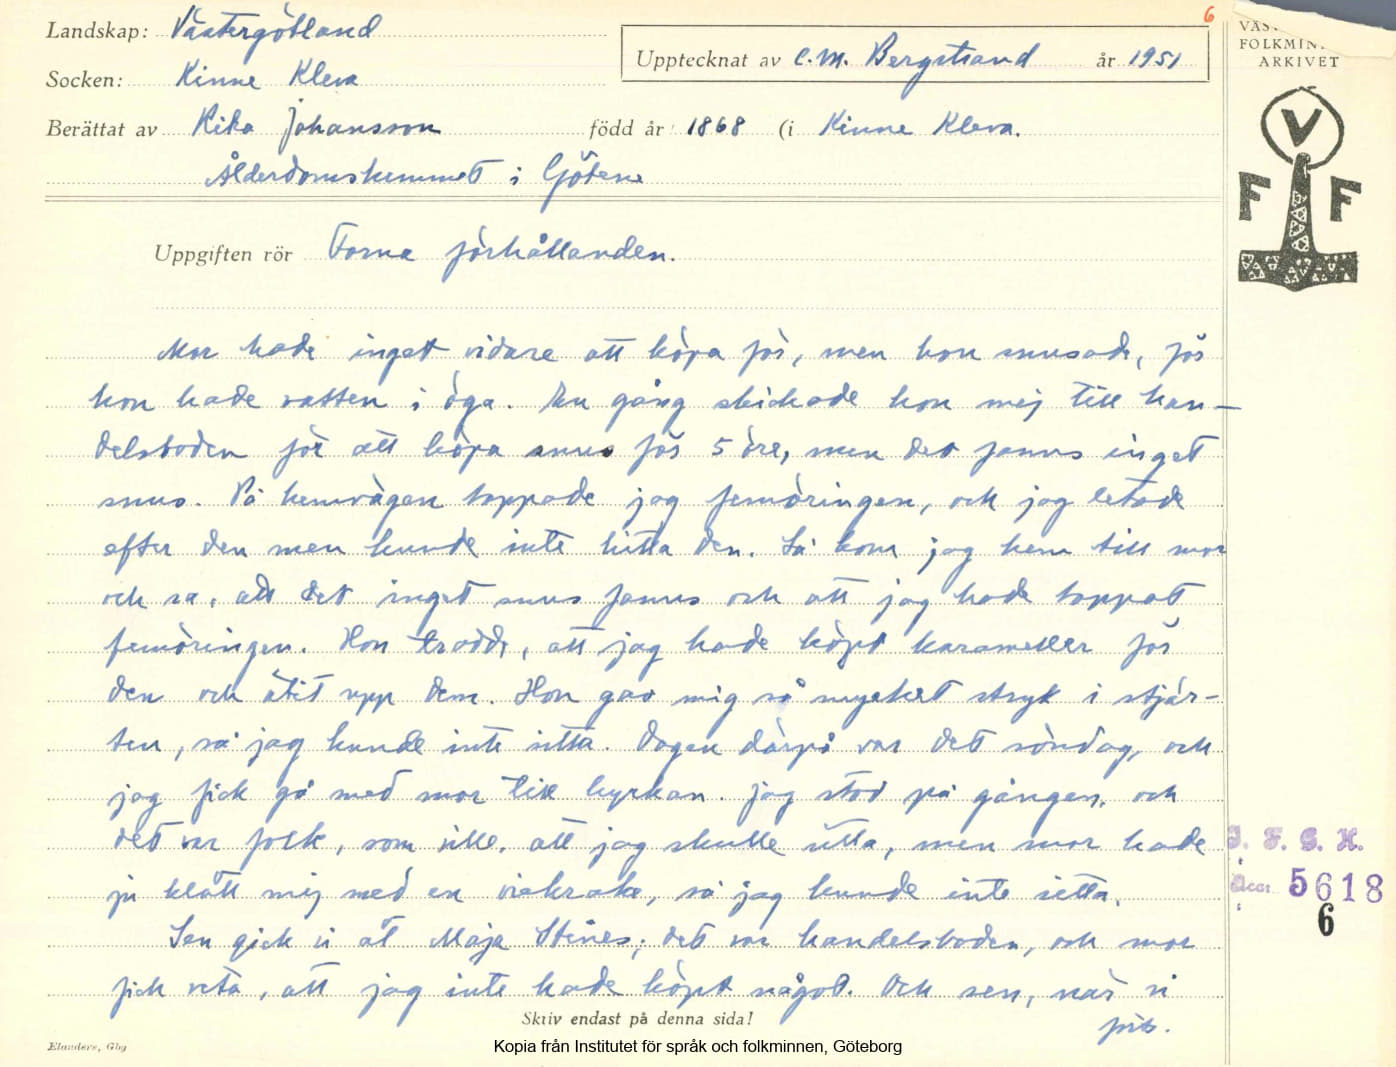 6
Landskap: Västergötland
Upptecknat av C.M. Bergstrand år 1951
Socken: Kinne Kleva
Berättat av Rika Johansson född år 1868 (i Kinne Kleva.
Ålderdomshemmet i Götene
VÄS
FOLKMIN
ARKIVET
V
F F
Uppgiften rör Forna förhållanden.
Mor hade inget vidare att köpa för, men hon snusade, för
hon hade vatten i öga. En gång skickade hon mej till han-
delsboden för att köpa snus för 5 öre, men det fanns inget
snus. På hemvägen toppade jag femöringen, och jag letade
efter den men kunde inte hitta den. Så kom jag hem till mor
och sa, att det inget snus fanns och att jag hade toppat
femöringen. Hon trodde, att jag hade köpt karameller för
den och ätit upp dem. Hon gav mig så mycket stryk i stjär-
ten, så jag kunde inte sitta. Dagen därpå var det söndag, och
jag fick gå med mor till kyrkan. Jag stod på gången, och
det var folk, som ville, att jag skulle sitta, men mor hade
ju klått mej med en viskrake, så jag kunde inte sitta.
Sen gick vi åt Maja Stines, det var handelsboden, och mor
fick veta, att jag inte hade köpt något. Och sen, när vi
Skriv endast på denna sida!
Elanders, Gbg
I. F. G. H.
Acc. 5618
6
Kopia från Institutet för språk och folkminnen, Göteborg